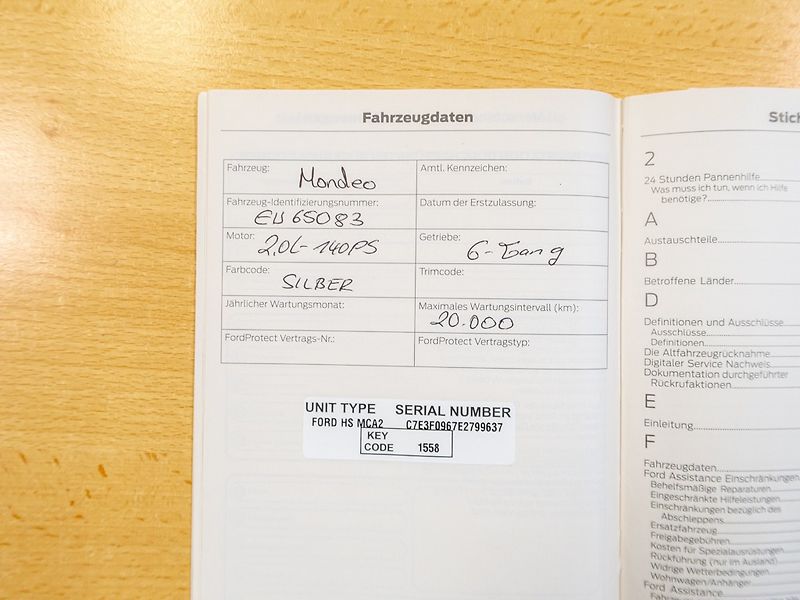 Fahrzeugdaten
Fahrzeug: Mondeo
Amtl. Kennzeichen:
Fahrzeug-Identifizierungsnummer: EU65083
Datum der Erstzulassung:
Motor: 2,0L-140PS
Getriebe: 6-Gang
Farbcode: SILBER
Trimcode:
Jährlicher Wartungsmonat:
Maximales Wartungsintervall (km): 20.000
FordProtect Vertrags-Nr.:
FordProtect Vertragstyp:
UNIT TYPE SERIAL NUMBER
FORD HS MCA2 C7E3F0967E2799637
KEY
CODE 1558
Stich
2
24 Stunden Pannenhilfe
Was muss ich tun, wenn ich Hilfe
benötige?
A
Austauschteile
B
Betroffene Länder
D
Definitionen und Ausschlüsse
Ausschlüsse
Definitionen
Die Altfahrzeugrücknahme
Digitaler Service Nachweis
Dokumentation durchgeführter
Rückrufaktionen
E
Einleitung
F
Fahrzeugdaten
Ford Assistance Einschränkungen
Behelfsmäßige Reparaturen
Eingeschränkte Hilfeleistungen
Einschränkungen bezüglich des
Abschleppens
Ersatzfahrzeug
Freigabegebühren
Kosten für Spezialausrüstungen
Rückführung (nur im Ausland)
Widrige Wetterbedingungen
Wohnwagen/Anhänger
Ford Assistance